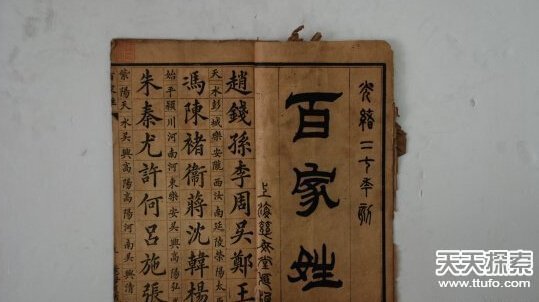 光緒二年刻
百家姓
上海
趙錢孫李周吳鄭王
天水彭城樂安隴西汝南延陵滎陽太
馮陳褚衛蔣沈韓楊
始平潁川河南河東樂安吳興南陽弘
朱秦尤許何呂施張
紫陽天水吳興高陽高陽河南吳興清
百家姓
天天探索
www.ttufo.com